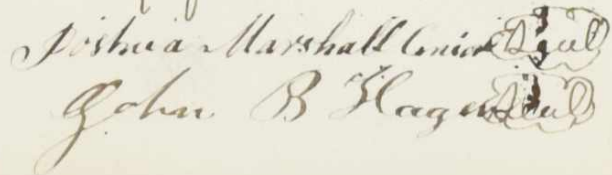 Joshua Marshall Senior Seal
John B Hager Seal